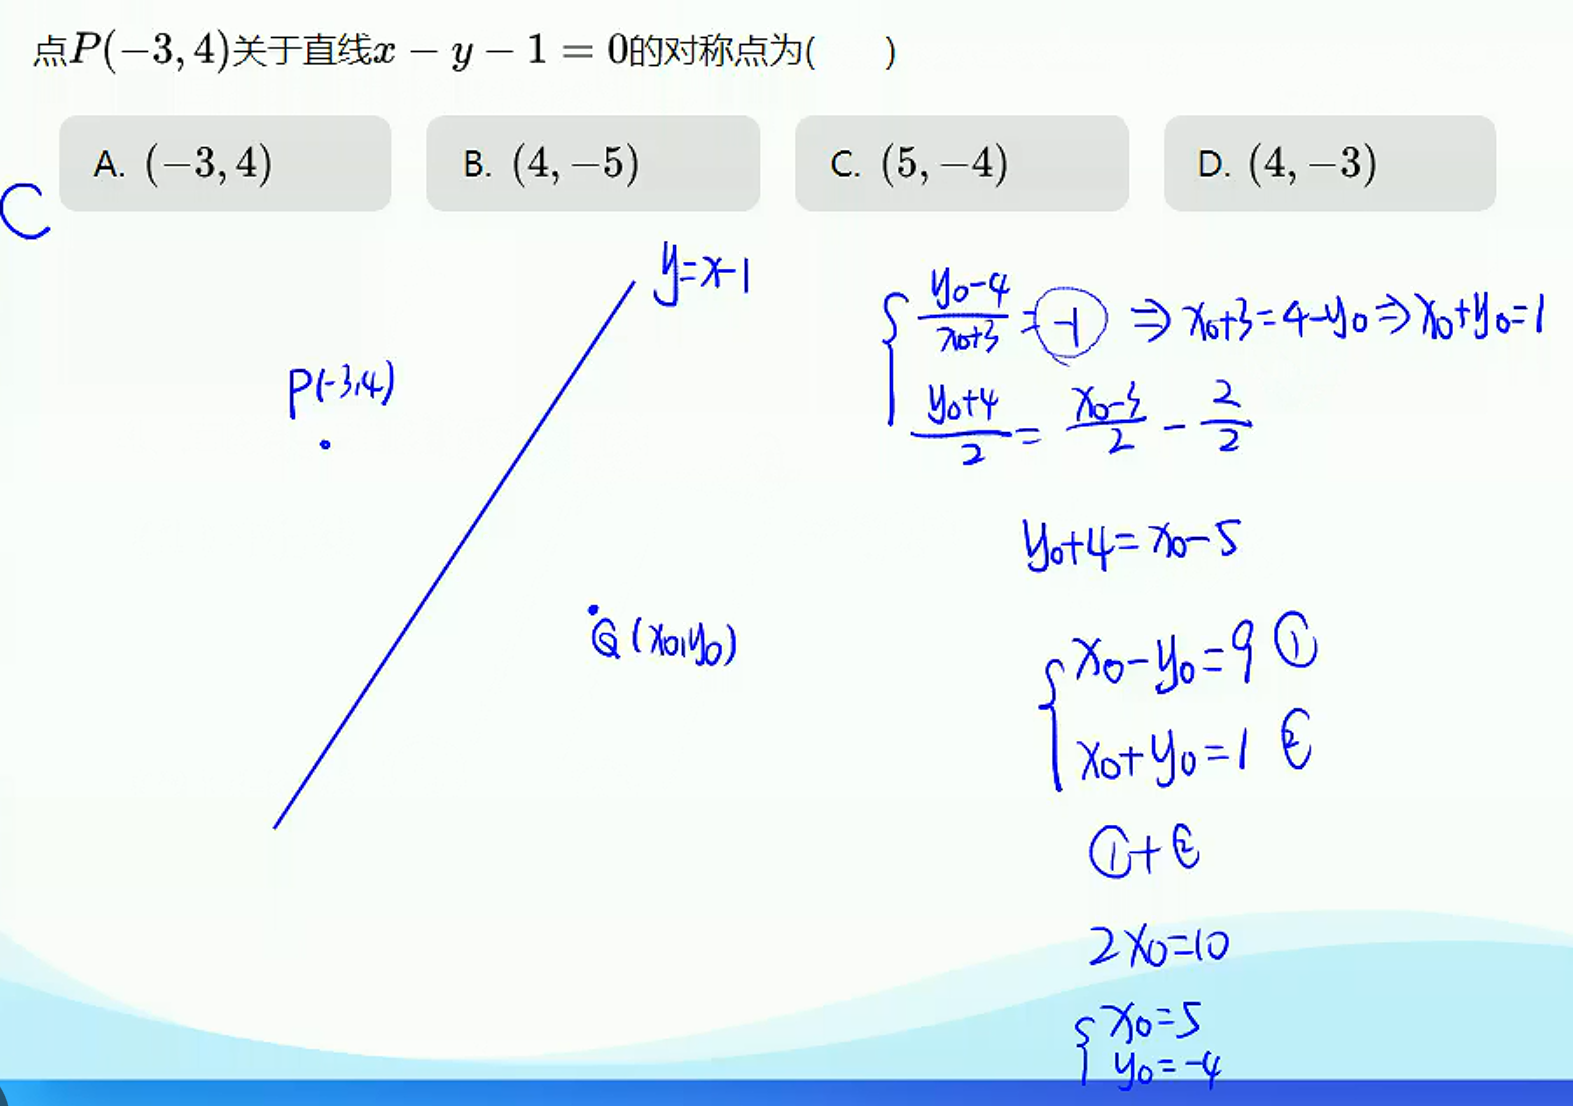 点P(−3, 4)关于直线x − y − 1 = 0的对称点为(  )
A. (−3, 4)
B. (4, −5)
C. (5, −4)
D. (4, −3)
C
y=x-1
P(-3,4)
Q(x₀,y₀)
{ (y₀-4)/(x₀+3) = -1 ⇒ x₀+3=4-y₀ ⇒ x₀+y₀=1
(y₀+4)/2 = (x₀-3)/2 - 2/2
y₀+4=x₀-5
{ x₀-y₀=9 ①
x₀+y₀=1 ②
①+②
2x₀=10
{ x₀=5
y₀=-4